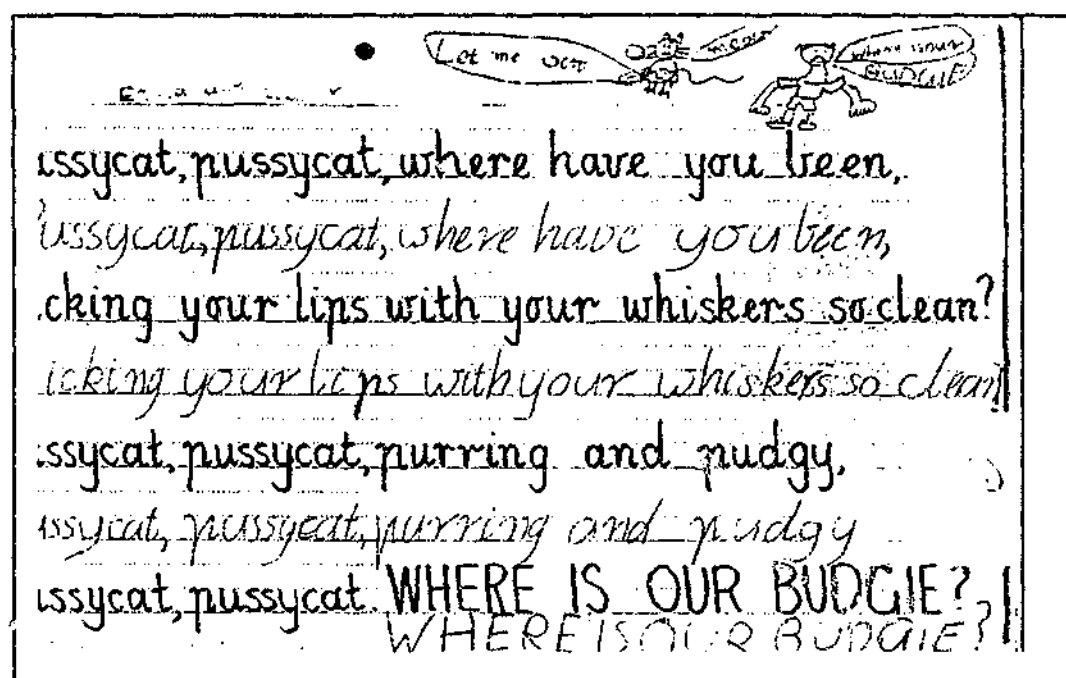 Let me out
meow
where is our
BUDGIE
ussycat, pussycat, where have you been,
Pussycat, pussycat, where have you been,
cking your lips with your whiskers so clean?
icking your lips with your whiskers so clean
ssycat, pussycat, purring and pudgy,
ussycat, pussycat, purring and pudgy
ussycat, pussycat. WHERE IS OUR BUDGIE?
WHERE IS OUR BUDGIE?